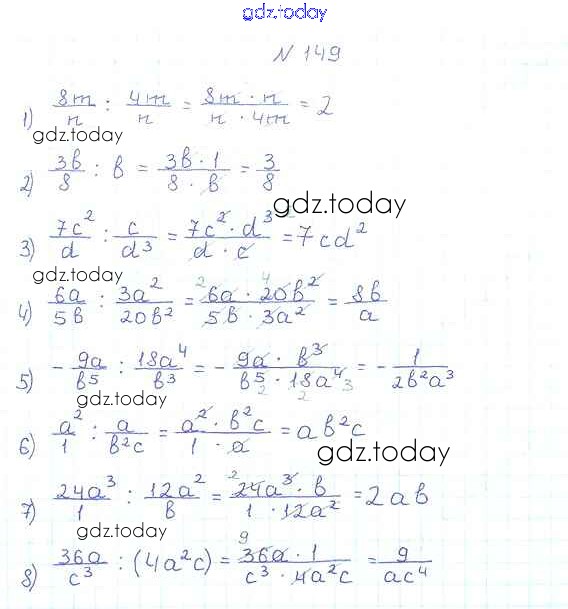 gdz.today
N 149
1) 8m/n : 4m/n = 8m · n / n · 4m = 2
gdz.today
2) 3в/8 : в = 3в · 1 / 8 · в = 3/8
gdz.today
3) 7c²/d : c/d³ = 7c² · d³ / d · c = 7cd²
gdz.today
4) 6a/5в : 3a²/20в² = 2 6a · 4 20в² / 5в · 3a² = 8в/a
5) - 9a/в⁵ : 18a⁴/в³ = - 9a · в³ / в⁵ 2 · 18a⁴ 2 3 = - 1/2в²a³
gdz.today
6) a²/1 : a/в²c = a² · в²c / 1 · a = aв²c
gdz.today
7) 24a³/1 : 12a²/в = 2 24a³ · в / 1 · 12a² = 2aв
gdz.today
8) 36a/c³ : (4a²c) = 9 36a · 1 / c³ · 4a²c = 9/ac⁴